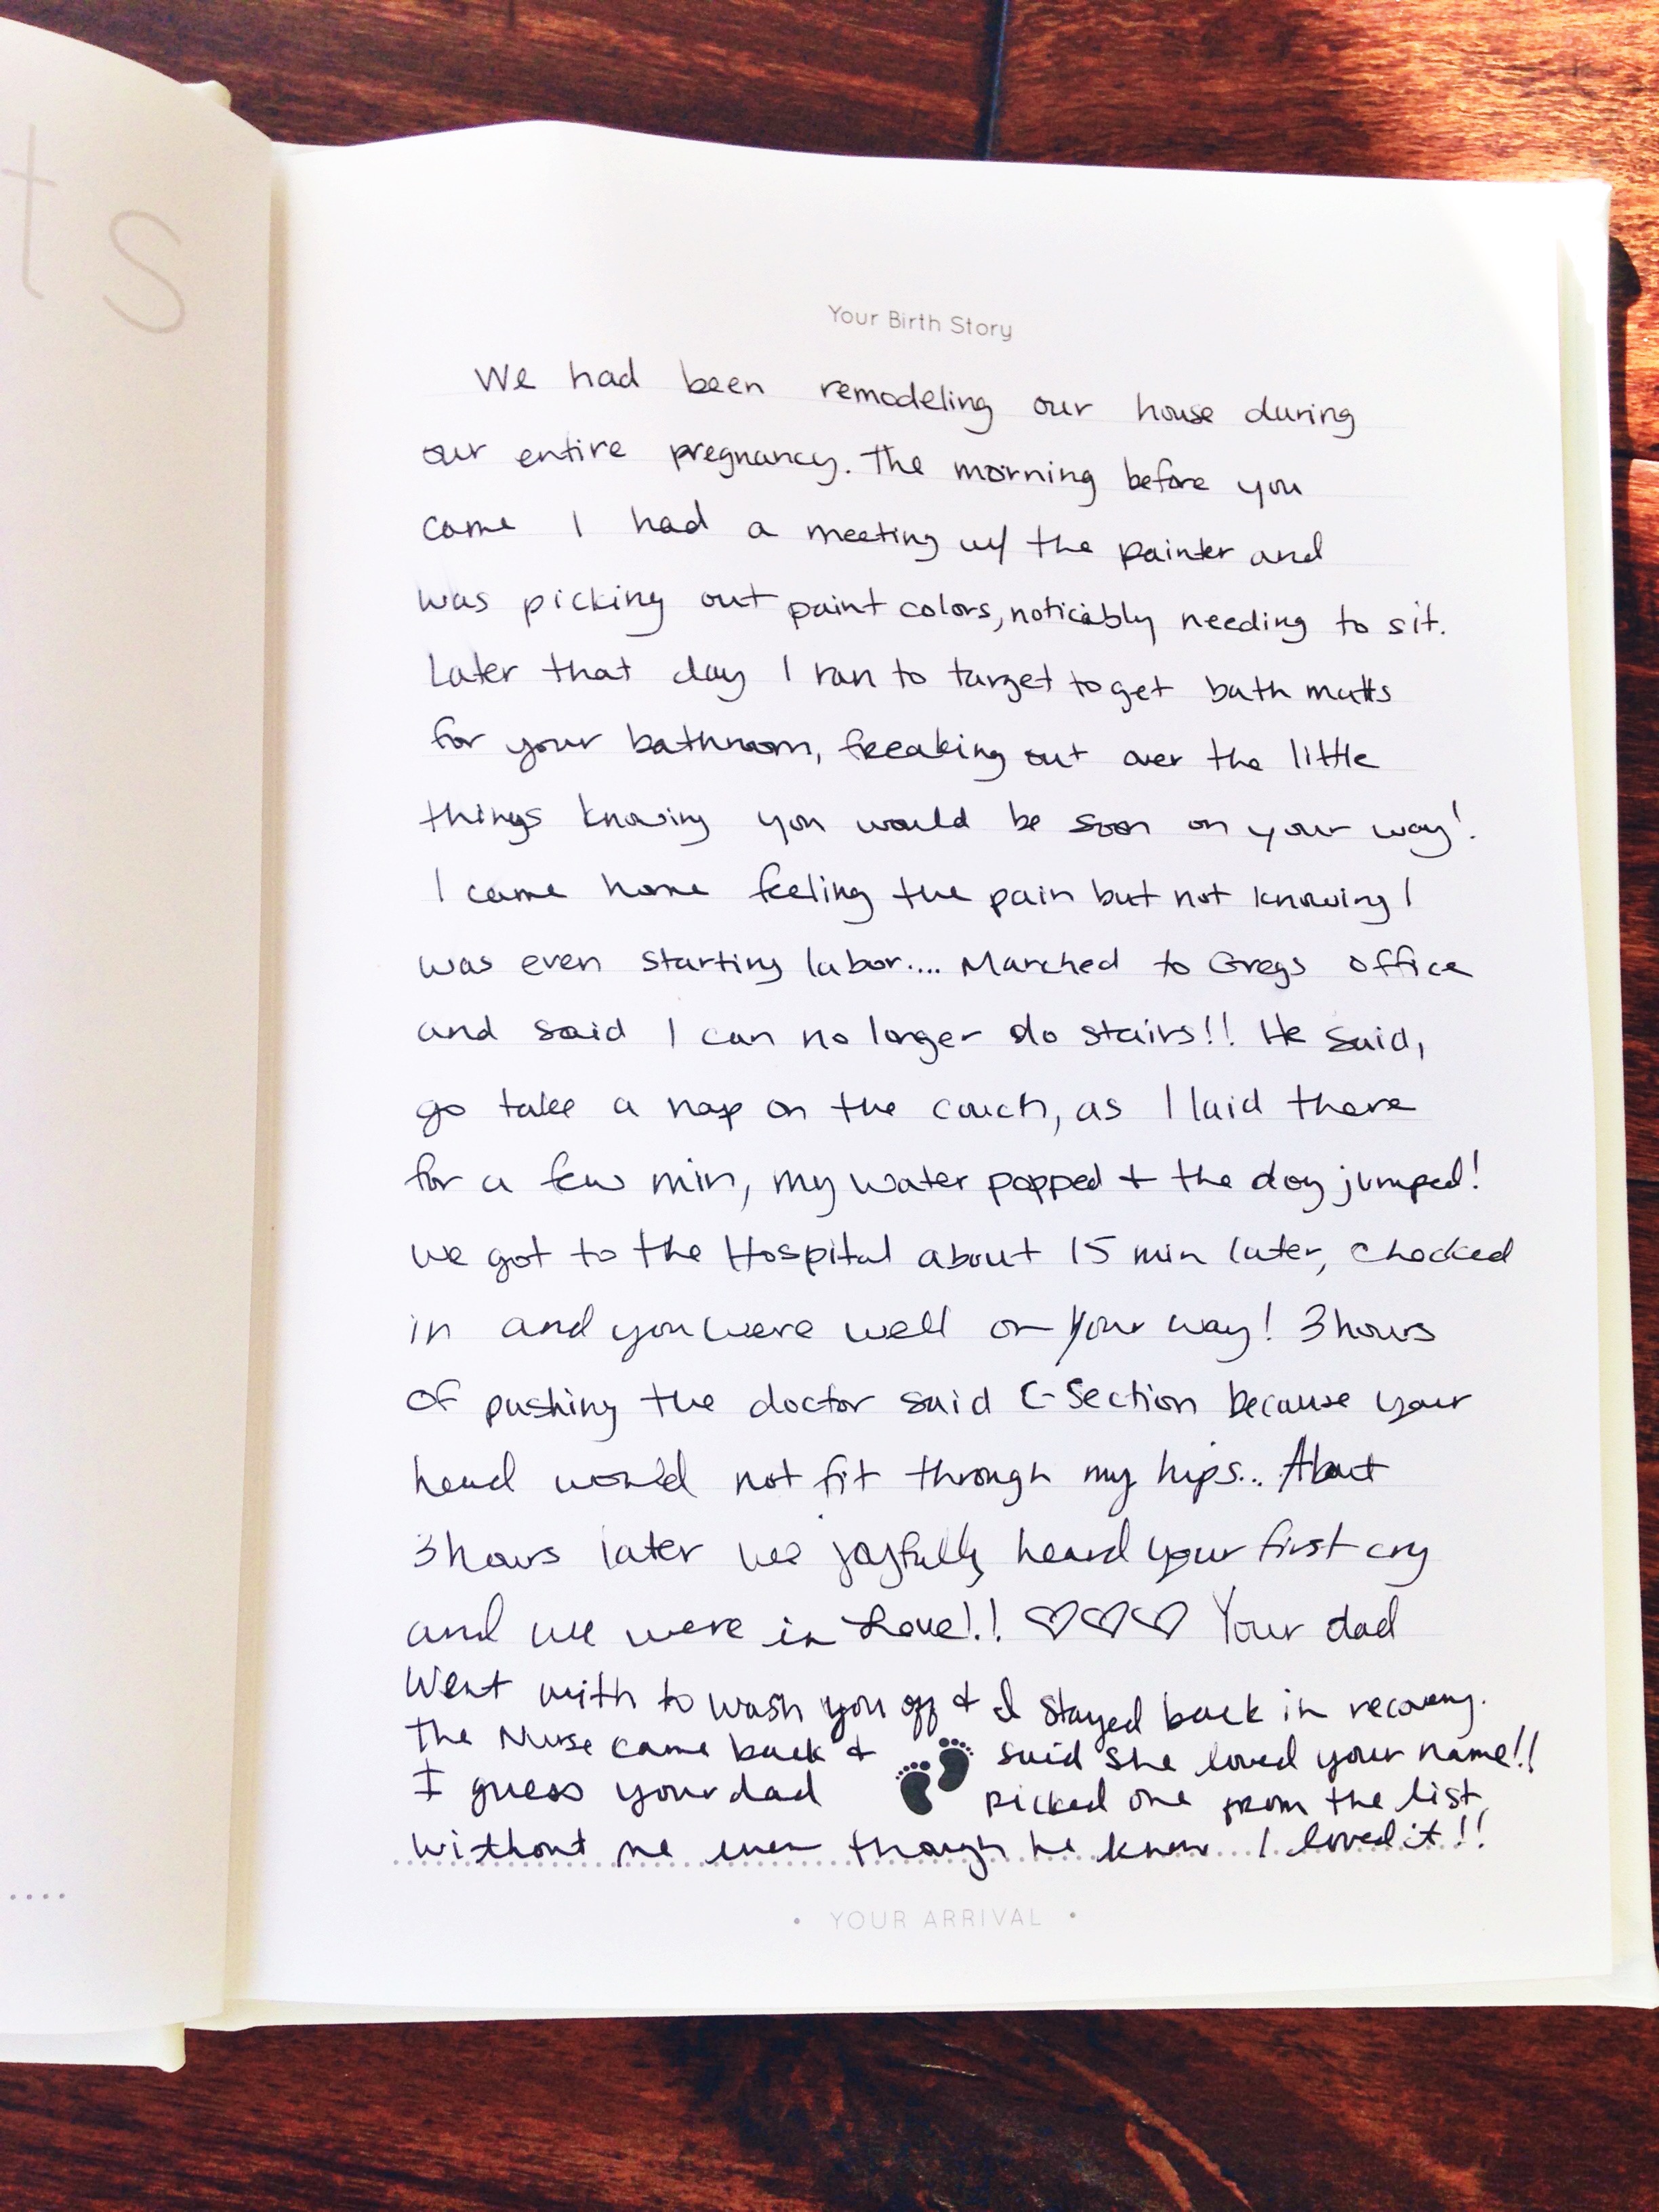 ts
Your Birth Story
We had been remodeling our house during
our entire pregnancy. The morning before you
came I had a meeting w/ the painter and
was picking out paint colors, noticably needing to sit.
Later that day I ran to target to get bath matts
for your bathroom, freaking out over the little
things knowing you would be soon on your way!
I came home feeling the pain but not knowing I
was even starting labor.... Marched to Gregs office
and said I can no longer do stairs!! He said,
go take a nap on the couch, as I laid there
for a few min, my water popped + the dog jumped!
we got to the Hospital about 15 min later, checked
in and you were well on your way! 3 hours
of pushing the doctor said C-Section because your
head would not fit through my hips... About
3 hours later we joyfully heard your first cry
and we were in Love!! ♡♡♡ Your dad
Went with to wash you off + I stayed back in recovery.
The Nurse came back + said she loved your name!!
I guess your dad picked one from the list
without me even though he knew I loved it!!
• YOUR ARRIVAL •